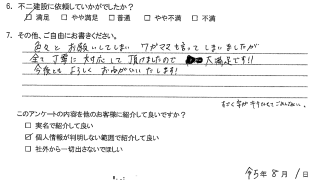 6. 不二建設に依頼していかがでしたか?
☑ 満足 □ やや満足 □ 普通 □ やや不満 □ 不満
7. その他、ご自由にお書きください。
色々と お願いしてしまい ワガママも言って しまいましたが
全て丁寧に 対応して 頂けましたので 大満足です!!
今後とも よろしく おねがいいたします!
すごく字が汚くてごめんなさい。
このアンケートの内容を他のお客様に紹介して良いですか?
□ 実名で紹介して良い
☑ 個人情報が判明しない範囲で紹介して良い
□ 社外から一切出さないでほしい
令5年 8月 1日